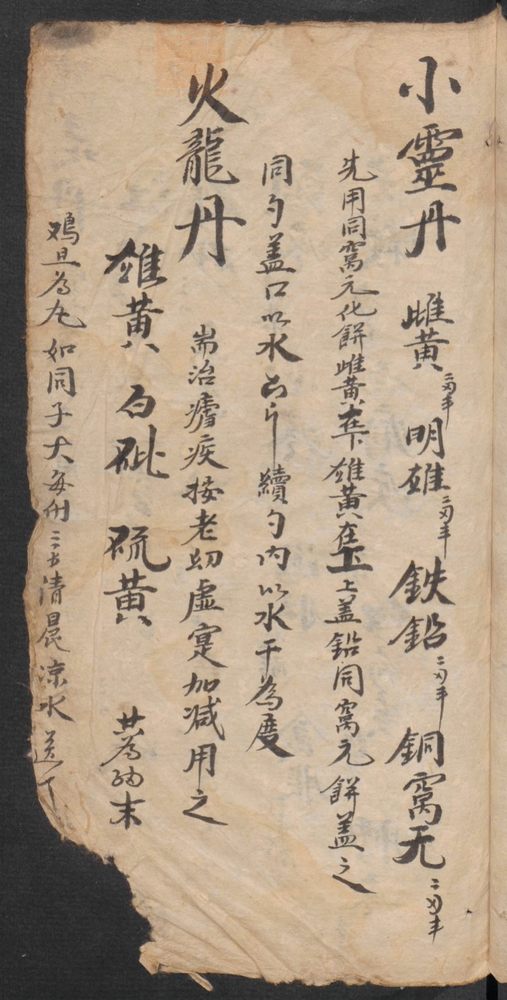 小靈丹 雌黄二两半 明雄二两半 鉄鉛二两半 銅窩无二两半
先用同窩元化餅雌黄在下雄黄在上上盖鉛同窩元餅盖之
同勺盖口以水 續勺内以水干為度
火龍丹 耑治瘧疾按老幼虚寔加减用之
雄黄 白砒 硫黄 共為细末
鸡旦為丸如同子大每付三 清晨凉水送下